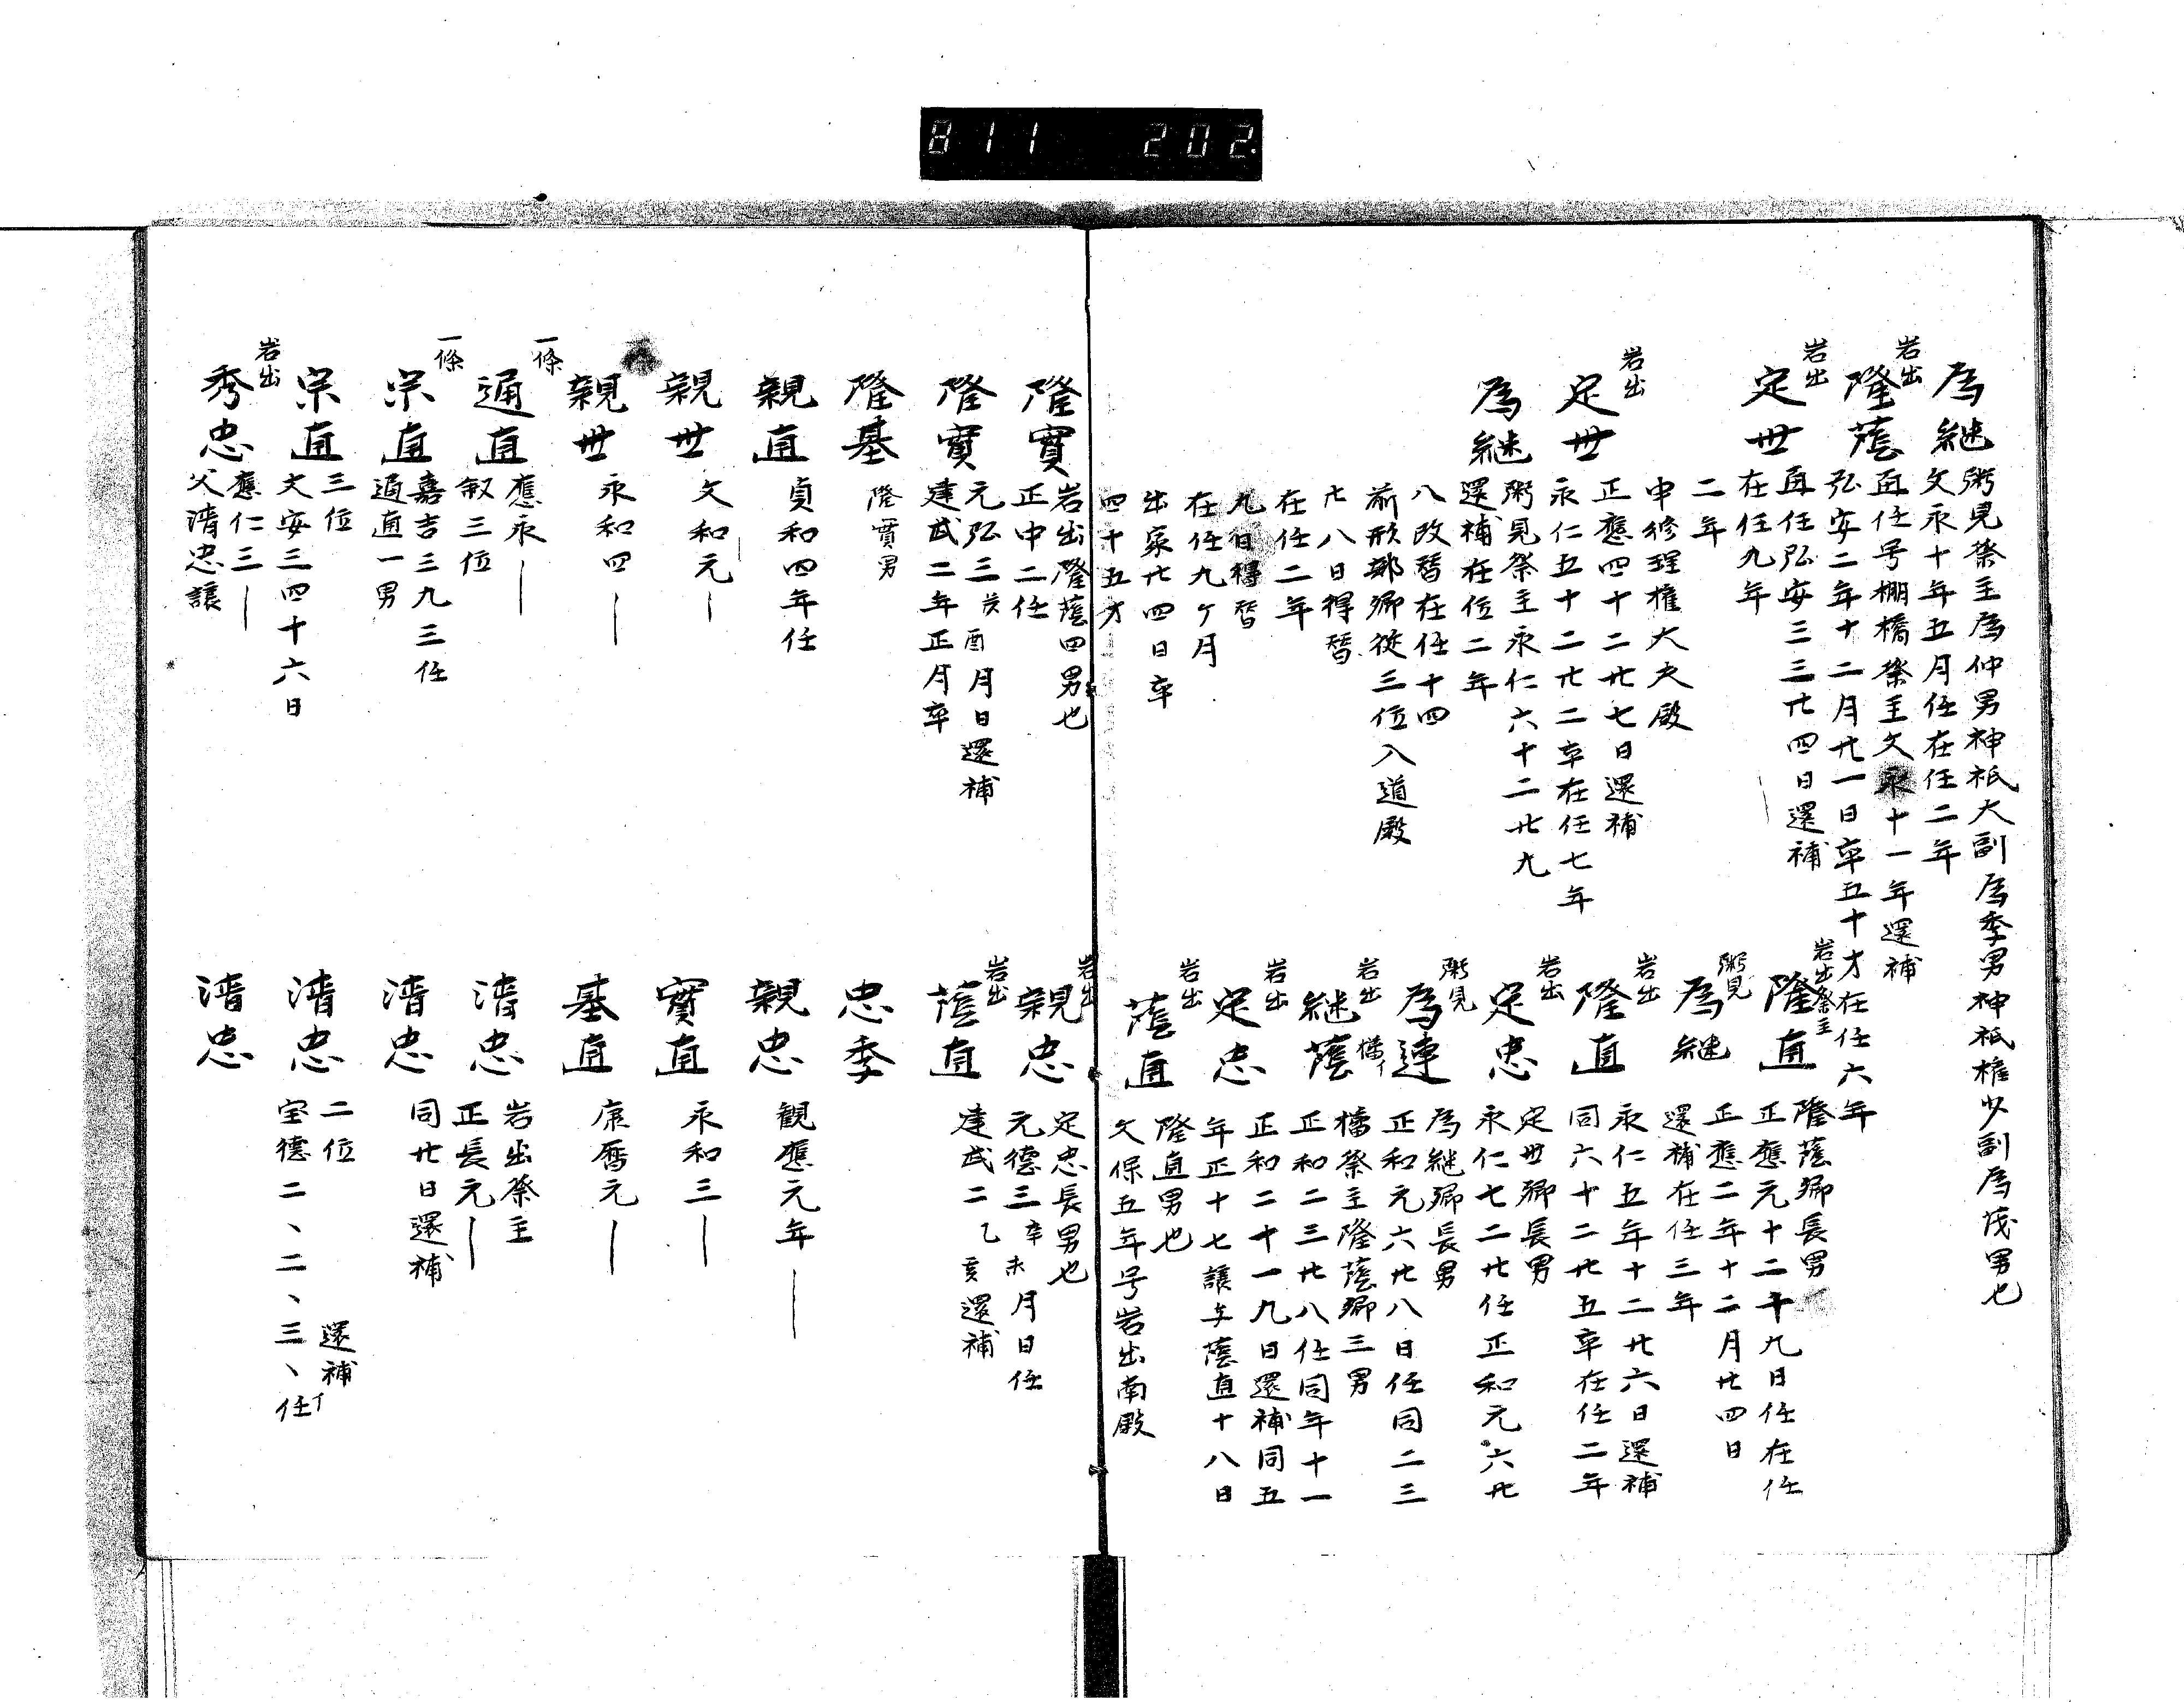 811 202
為継
粥見祭主為仲男神祇大副為季男神祇権少副為茂男也
文永十年五月任在任二年
岩出
隆蔭
直任号棚橋祭主文永十一年還補
弘安二年十二月廿一日卒五十才在任六年
岩出
定世
直任弘安三三廿四日還補
在任九年
岩出祭主
隆直
隆蔭卿長男
正應元十二十九日任在任
二年
粥見
為継
正應二年十二月廿四日
還補在任三年
申修理権大夫殿
岩出
定世
正應四十二廿七日還補
永仁五十二廿二卒在任七年
岩出
隆直
永仁五年十二廿六日還補
同六十二廿五卒在任二年
為継
粥見祭主永仁六十二廿九
還補在位二年
岩出
定忠
定世卿長男
永仁七二廿任正和元六廿
八改替在任十四
前刑部卿従三位入道殿
粥見
為連
為継卿長男
正和元六廿八日任同二三
廿八日得替
在任二年
岩出
継蔭
橘祭主隆蔭卿三男
正和二三廿八任同年十一
九日得替
在任九ケ月
岩出
定忠
正和二十一九日還補同五
年正十七譲与蔭直十八日
出家廿四日卒
四十五才
岩出
蔭直
隆直男也
文保五年号岩出南殿
隆實
岩出隆蔭四男也
正中二任
岩出
親忠
定忠長男也
元徳三辛未月日任
隆實
元弘三癸酉月日還補
建武二年正月卒
岩出
蔭直
建武二乙亥還補
隆基
隆實男
忠季
親直
貞和四年任
親忠
観應元年―
親世
文和元―
實直
永和三―
親世
永和四―
基直
康暦元―
一條
通直
應永―
叙三位
清忠
岩出祭主
正長元―
一條
宗直
嘉吉三九三任
通直一男
清忠
同廿日還補
宗直
三位
文安三四十六日
清忠
二位 還補イ
宝徳二、二、三、任
岩出
秀忠
應仁三―
父清忠譲
清忠